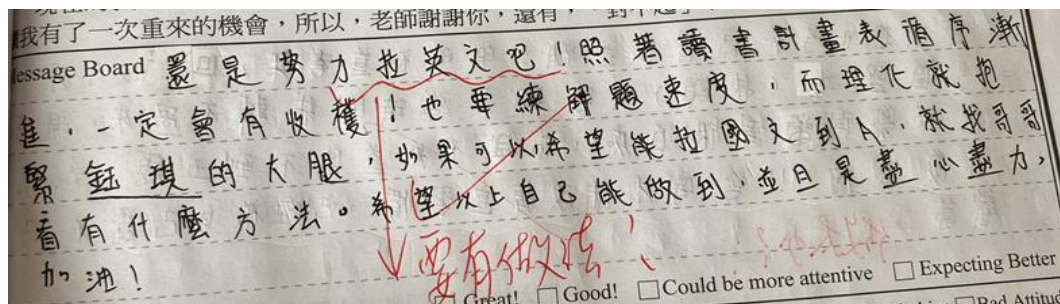 我有了一次重來的機會，所以，老師謝謝你，還有，
Message Board 還是努力拉英文吧！照著讀書計畫表循序漸
進，一定會有收穫！也要練解題速度，而理化就抱
緊鈺琪的大腿，如果可以，希望能拉國文到A，就找哥哥
看有什麼方法。希望以上自己能做到，並且是盡心盡力，
加油！
要有做法！
Great! □Good! □Could be more attentive □Expecting Better
Bad Attitu